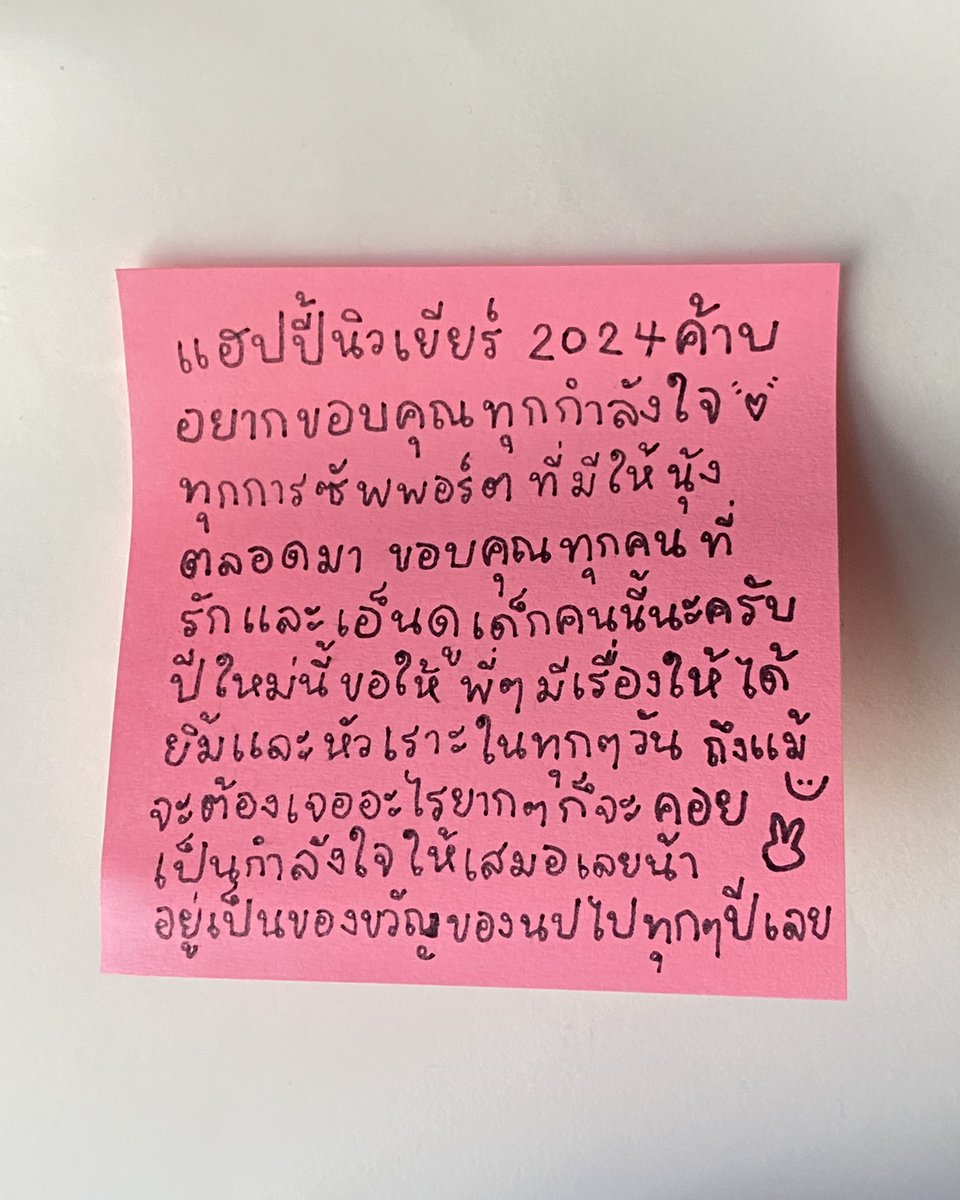 แฮปปี้นิวเยียร์ 2024 ค้าบ
อยากขอบคุณทุกกำลังใจ
ทุกการซัพพอร์ต ที่มีให้นุ้ง
ตลอดมา ขอบคุณทุกคน ที่
รักและเอ็นดูเด็กคนนี้นะครับ
ปีใหม่นี้ ขอให้ พี่ๆ มีเรื่องให้ได้
ยิ้มและหัวเราะในทุกๆวัน ถึงแม้
จะต้องเจออะไรยากๆก็จะ คอย
เป็นกำลังใจให้เสมอเลยน้า
อยู่เป็นของขวัญของนปไปทุกๆปีเลย